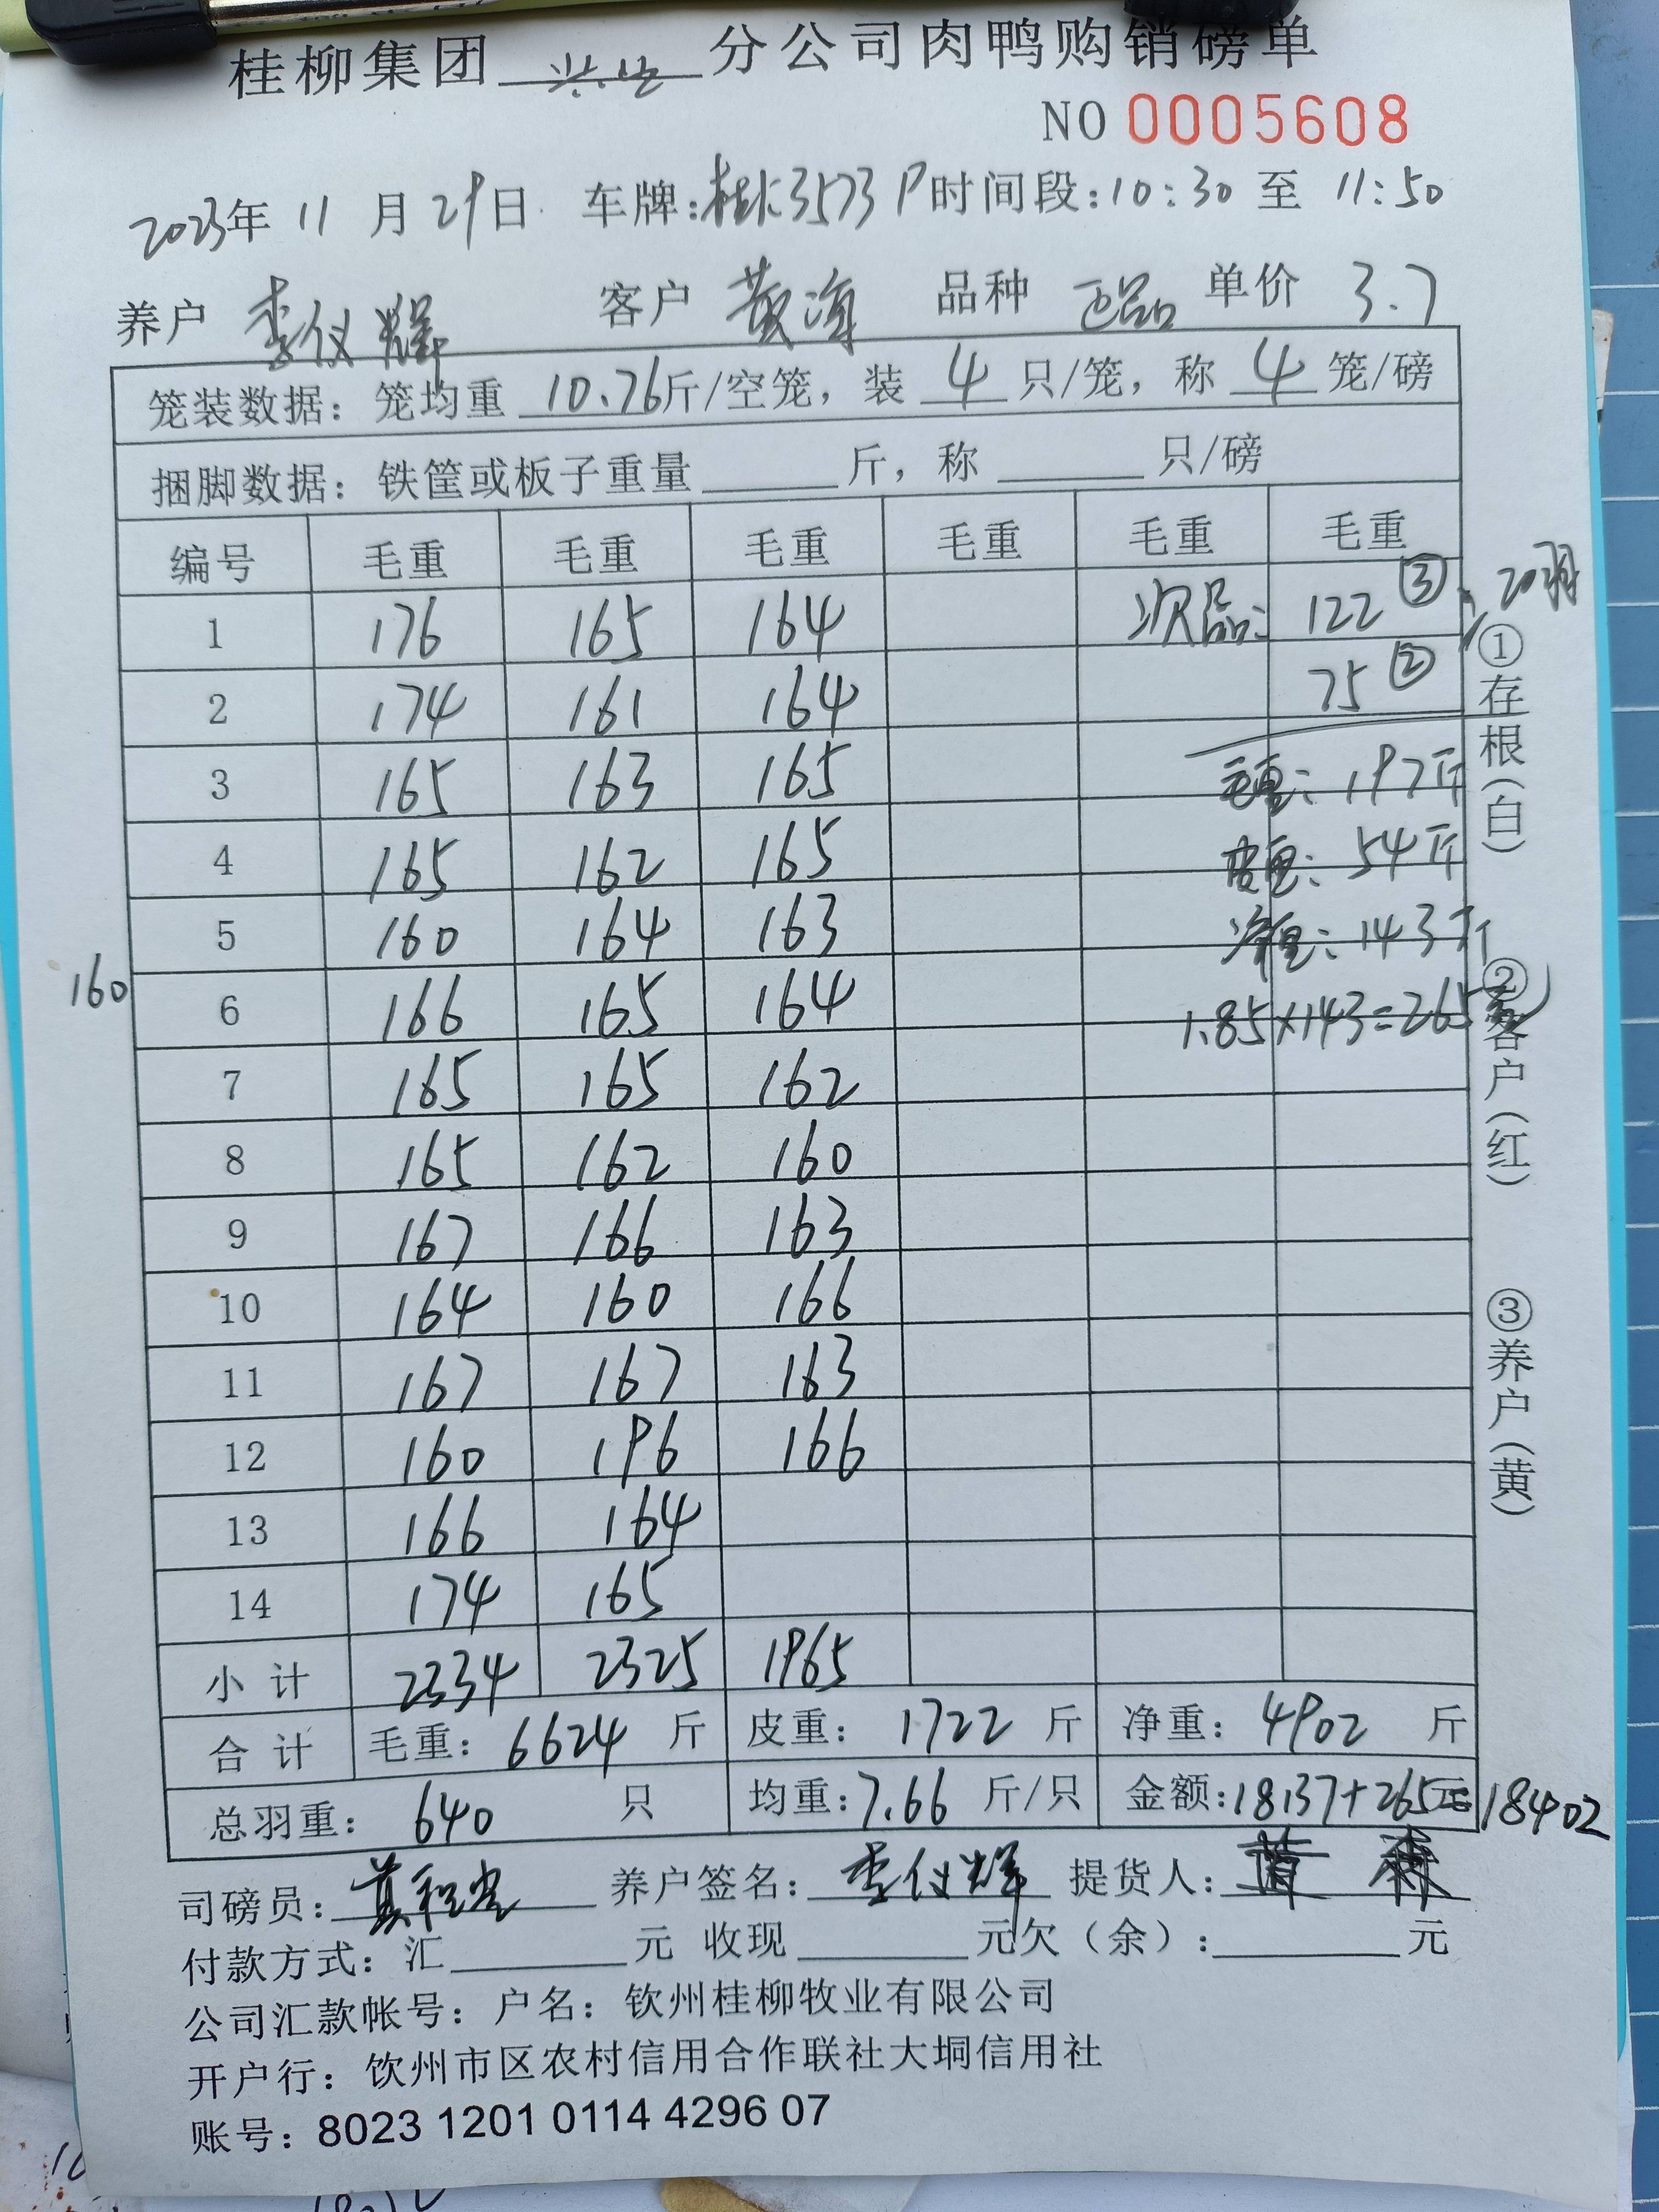 桂柳集团 分公司肉鸭购销磅单
NO 0005608
2023年 11 月 29日 车牌:桂K3573P 时间段:10:30 至 11:50
养户 李仪辉 客户 黄海 品种 正品 单价 3.7
笼装数据：笼均重 10.76斤/空笼，装 4 只/笼，称 4 笼/磅
捆脚数据：铁筐或板子重量 斤，称 只/磅
编号 毛重 毛重 毛重 毛重 毛重 毛重
1 176 165 164 次品: 122③ 20羽
2 174 161 164 75②
3 165 163 165 毛重: 197斤
4 165 162 165 皮重: 54斤
5 160 164 163 净重: 143斤
160
6 166 165 164 1.85×143=265
7 165 165 162
8 165 162 160
9 167 166 163
10 164 160 166
11 167 167 163
12 160 196 166
13 166 164
14 174 165
小计 2334 2325 1965
合计 毛重: 6624 斤 皮重: 1722 斤 净重: 4902 斤
总羽重: 640 只 均重:7.66 斤/只 金额:18137+265元=18402
司磅员: 养户签名: 李仪辉 提货人:
付款方式：汇 元 收现 元欠（余）: 元
公司汇款帐号：户名：钦州桂柳牧业有限公司
开户行：钦州市区农村信用合作联社大垌信用社
账号：8023 1201 0114 4296 07
①存根（白）
②客户（红）
③养户（黄）